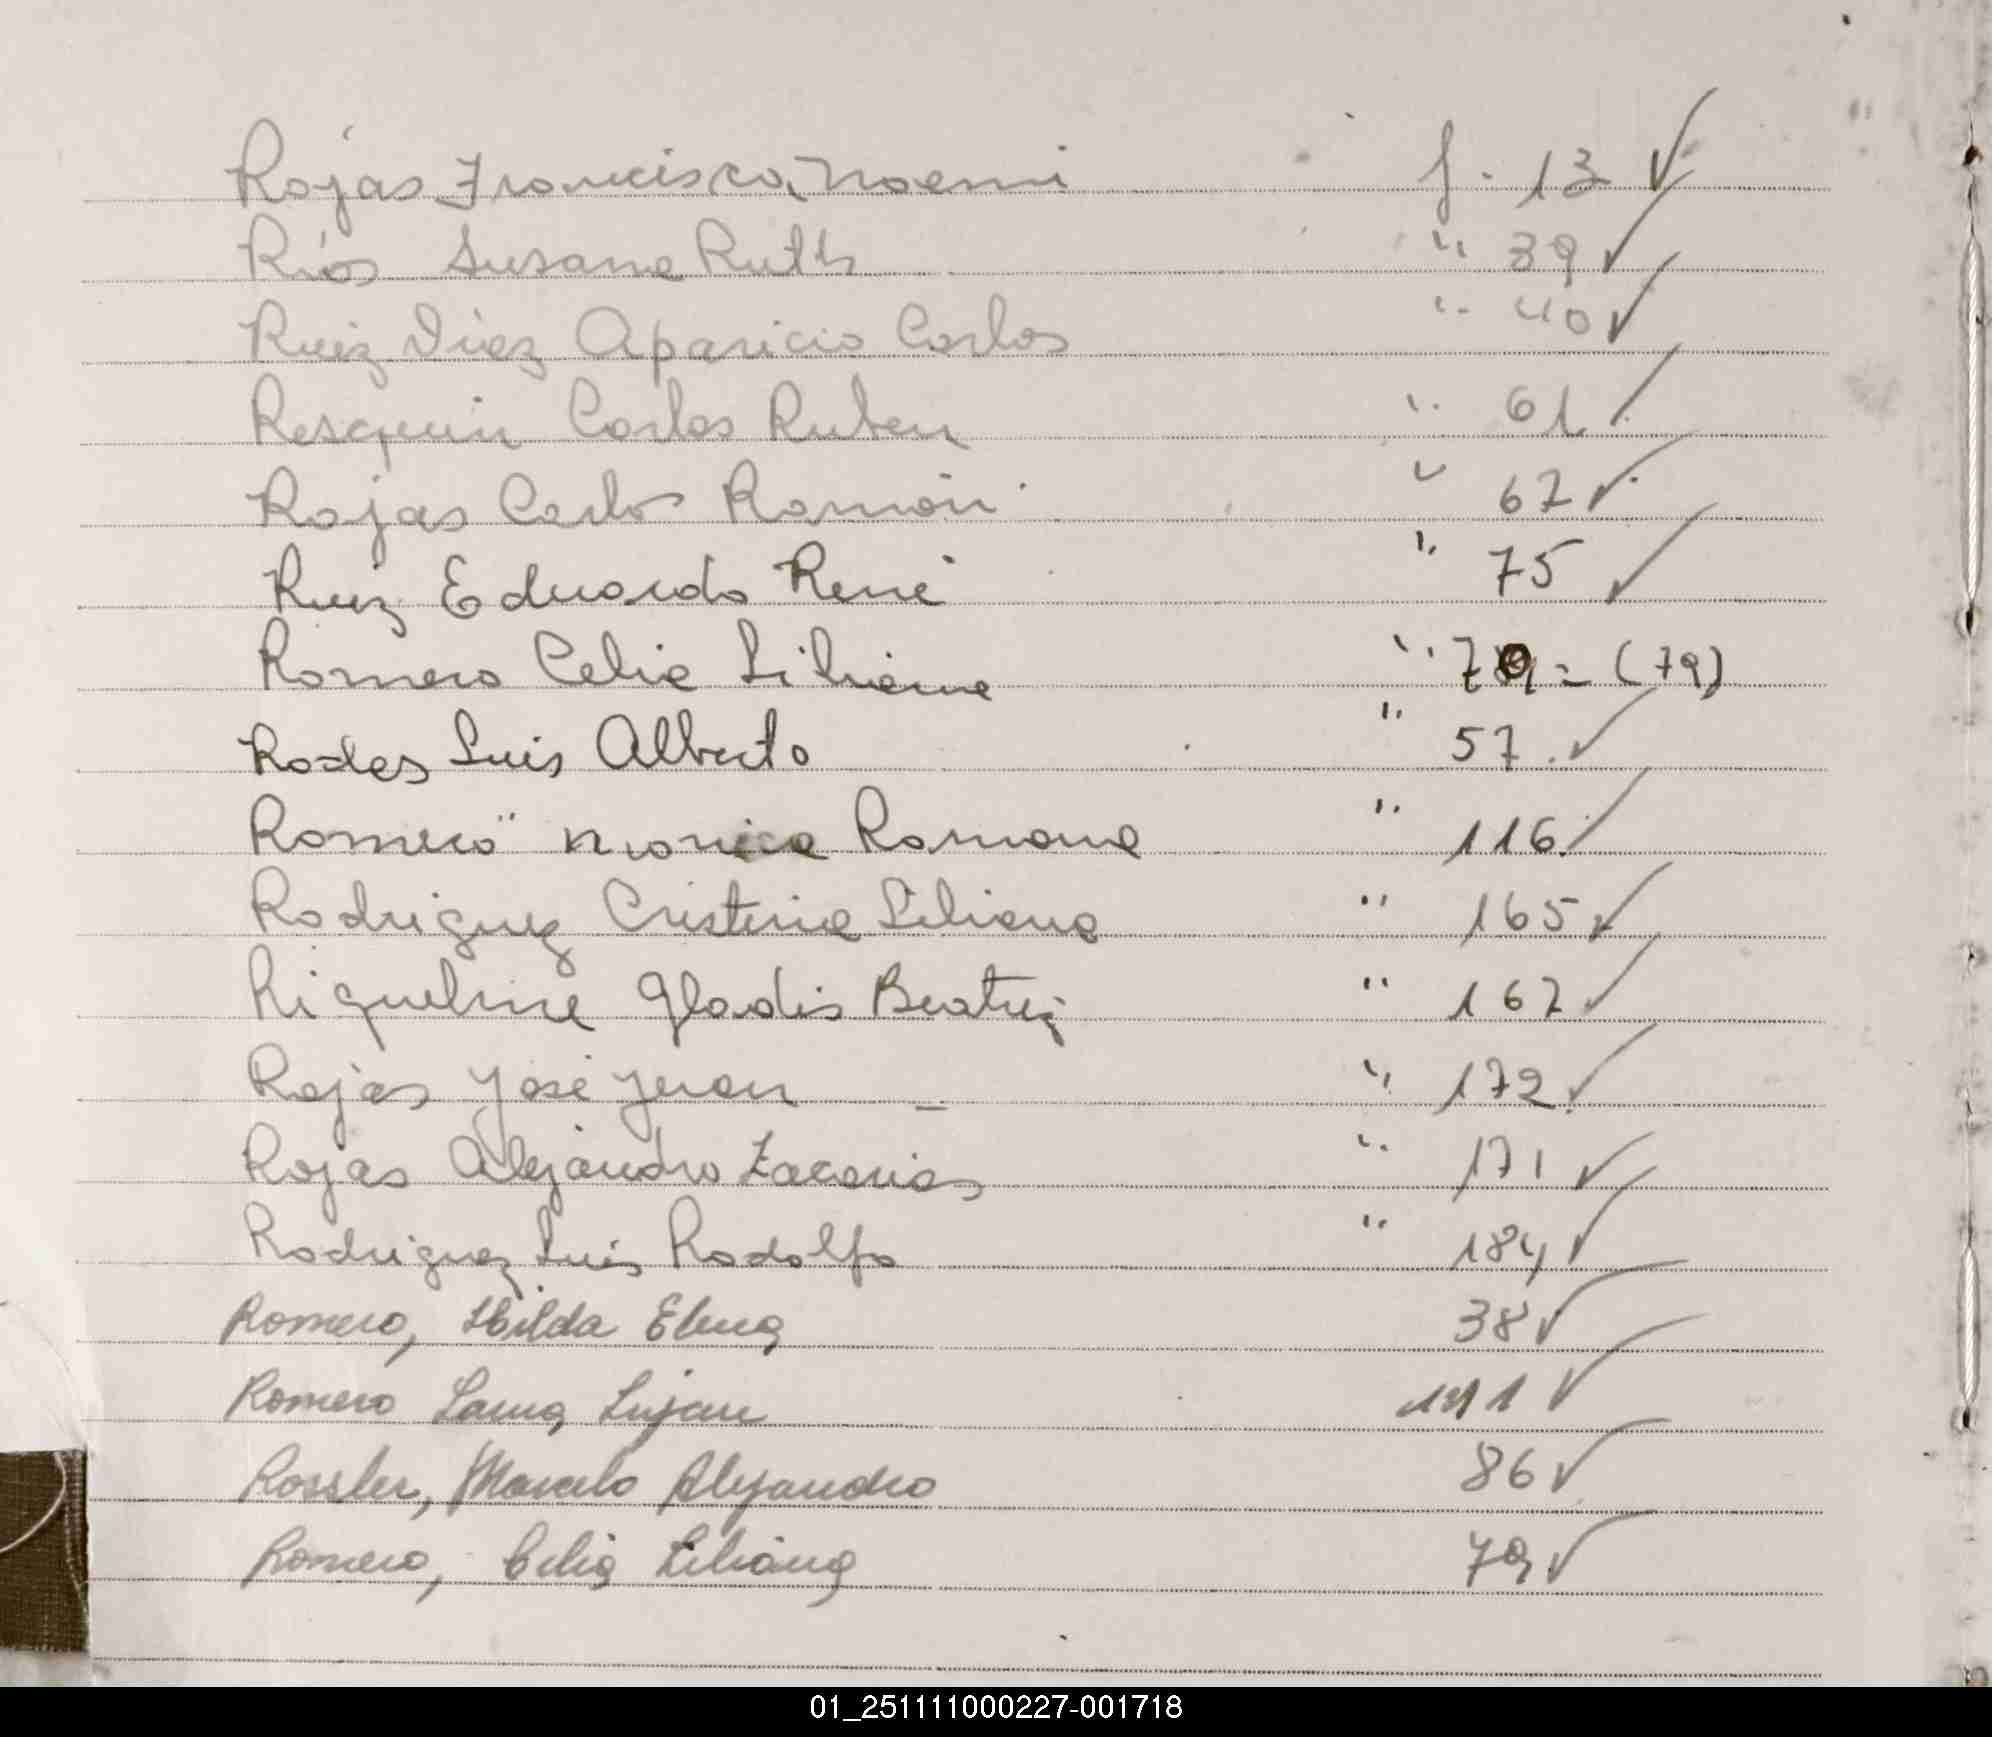 Rojas Francisca Noemi f. 13 ✓
Ríos Susana Ruth " 39 ✓
Ruiz Diaz Aparicio Carlos " 40 ✓
Resquin Carlos Ruben " 61 ✓
Rojas Carlos Ramón " 67 ✓
Ruiz Eduardo René " 75 ✓
Romero Celia Liliana " 79 = (79)
Rodas Luis Alberto " 57. ✓
Romero Monica Ramona " 116 ✓
Rodriguez Cristina Liliana " 165 ✓
Riquelme Gladis Beatriz " 167 ✓
Rojas José Juan – " 172 ✓
Rojas Alejandro Zacarias " 171 ✓
Rodriguez Luis Rodolfo " 184 ✓
Romero, Hilda Elena 38 ✓
Romero Laura Lujan ✓
Rossler, Marcelo Alejandro 86 ✓
Romero, Celia Liliana 79 ✓
01_251111000227-001718